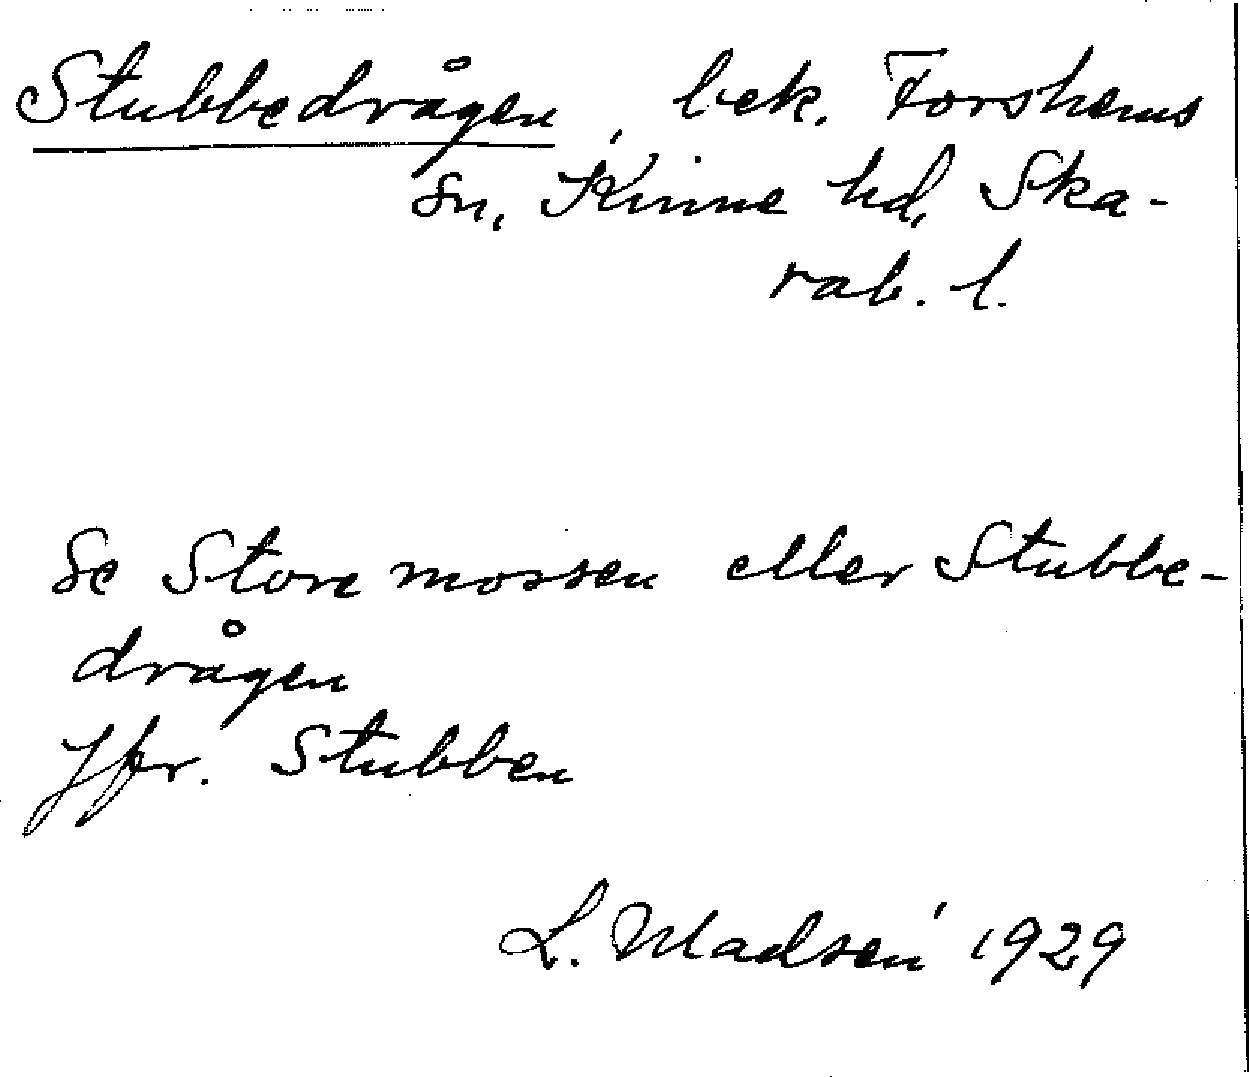 Stubbedrågen, bek. Forshems
sn, Kinne hd, Ska-
rab. l.
Se Store mossen eller Stubbe-
drågen
Jfr. Stubben
L. Madsén 1929